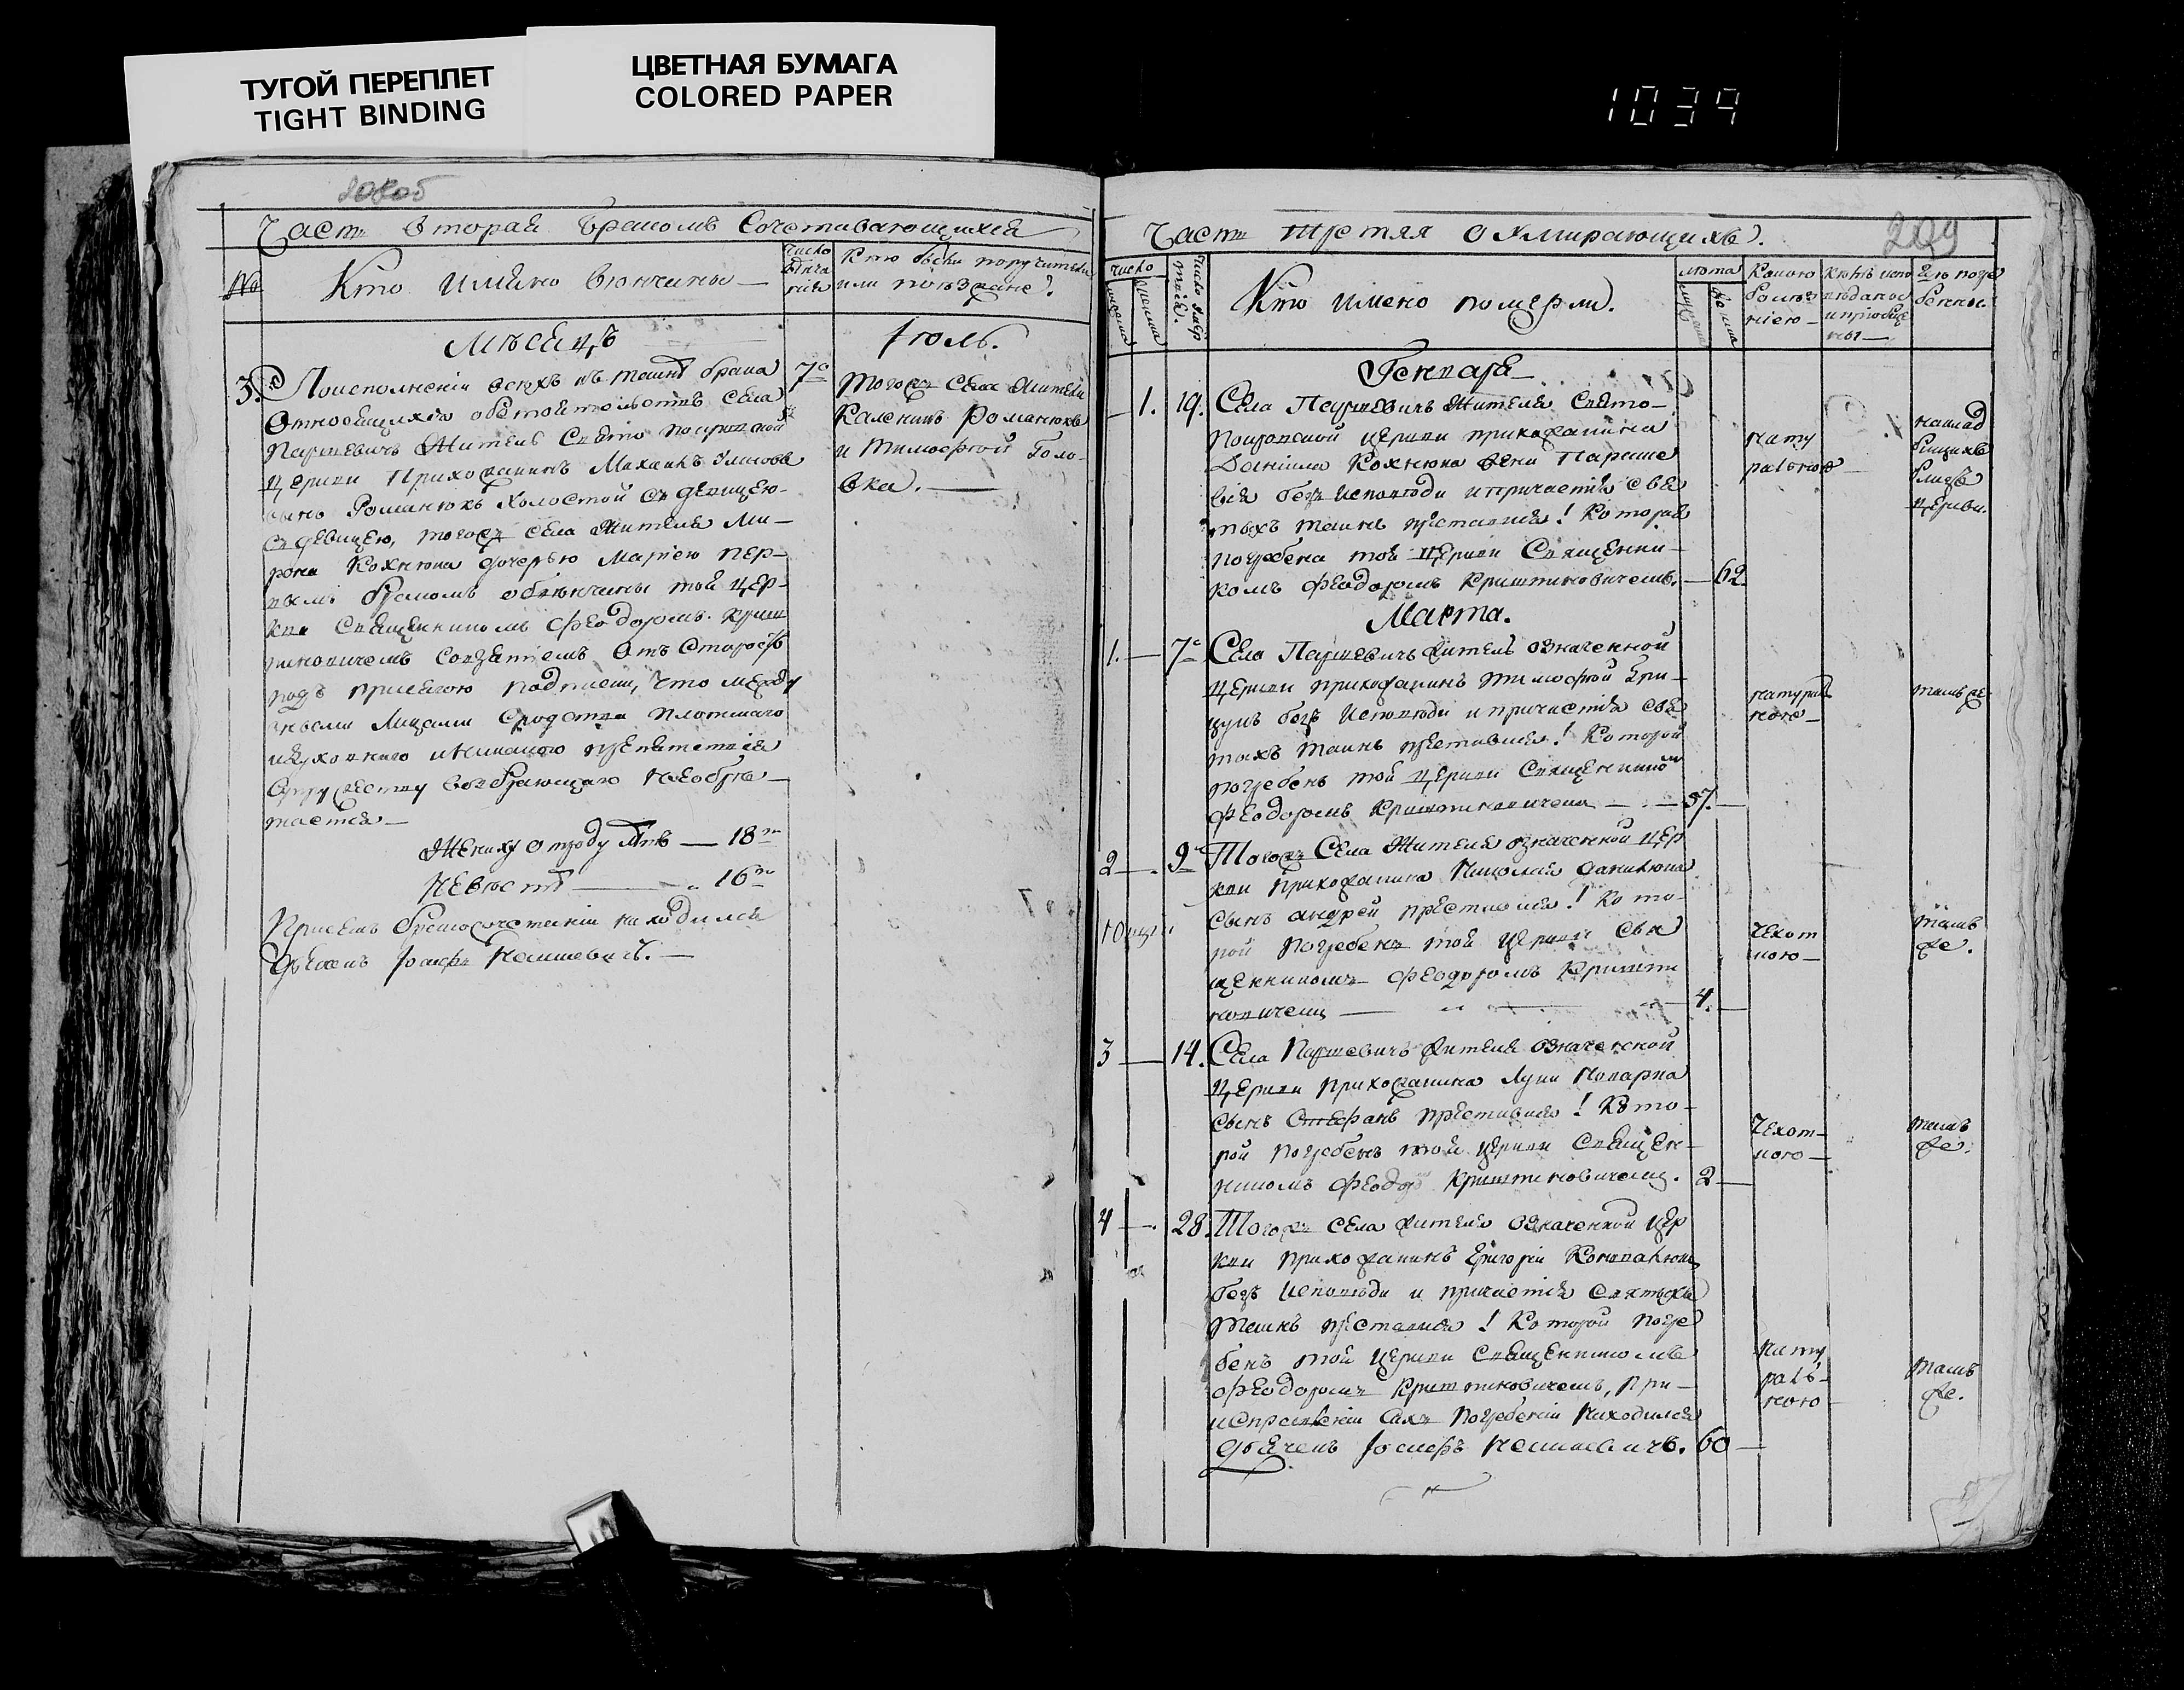 ТУГОЙ ПЕРЕПЛЕТ
TIGHT BINDING
ЦВЕТНАЯ БУМАГА
COLORED PAPER
1039
208об
Часть вторая бракомъ сочетавающихся
№
Кто имяно венчаны
число венча ния
Кто были поручители или поезжане?
Месяцъ
Iюль.
3.
По исполненiи всехъ къ таинт брака
относящихся обстоятельствъ села
житель Свято Покровской
церкви прихожанинъ Михаилъ
сынъ Романюкъ холостой съ девицею
съ девицею, тогожъ села жителя Ми-
рона Кохнюка дочерью Марiею пер-
вымъ бракомъ обвенчаны той цер-
кви Священникомъ Феодоромъ
подъ присягою подписки, что между
ними лицами сродства плотскаго
и духовнаго и никакого препятствiя
супружеству возбраняющаго необре-
тается
Жениху отроду летъ — 18
Невесте — 16
При семъ бракосочетанiи находился
дьячекъ Iосифъ
7
тогожъ села жители
Каленикъ Романюкъ
и Тимофей Голо-
вка.
Часть третяя о умирающихъ.
209
число
число умер
Кто имено померли.
лета
Какою болез нiею
Кемъ испо веданы и прiобще ны
где погре бенны
Генваря
1. 19.
Села жителя Свято-
Покровской церкви прихожанина
Данiила Кохнюка жена Параске
вiя безъ исповеди и причастiя свя
тыхъ таинъ преставися! Которая
погребена той церкви Священни-
комъ Феодоромъ Криштиновичемъ. — 62.
нату
ральною
на клад
бищихъ
близъ
церкви.
Марта.
1. 7
Села житель означенной
церкви прихожанинъ Тимофей Гри-
цукъ безъ исповеди и причастiя свя
тыхъ таинъ преставися! Которой
погребенъ той церкви Священникомъ
Феодоромъ Криштиновичемъ — 57.
натураль
ною
тамъ же
2 9
Тогожъ села жителя означенной цер
кви прихожанина Николая Данилюка
сынъ Андрей преставися! Кото-
рой погребенъ той церкви Свя
щенникомъ Феодоромъ Кришти
новичемъ — 4.
чехот
ною
тамъ
же.
3 14.
Села жителя означенной
церкви прихожанина Луки
сынъ Стефанъ преставися! Кото-
рой погребенъ той церкви Священ-
никомъ Феодо Криштиновичемъ. 2
чехот
ною
тамъ
же.
4 28.
Тогожъ села житель означенной цер
кви прихожанинъ Григорiй
безъ исповеди и причастiя святыхъ
таинъ преставися! Которой погре
бенъ той церкви Священникомъ
Феодоромъ Криштиновичемъ, при
исправленiи сихъ погребенiй находился
дьячекъ Iосифъ 60
нату
раль-
ною
тамъ
же.